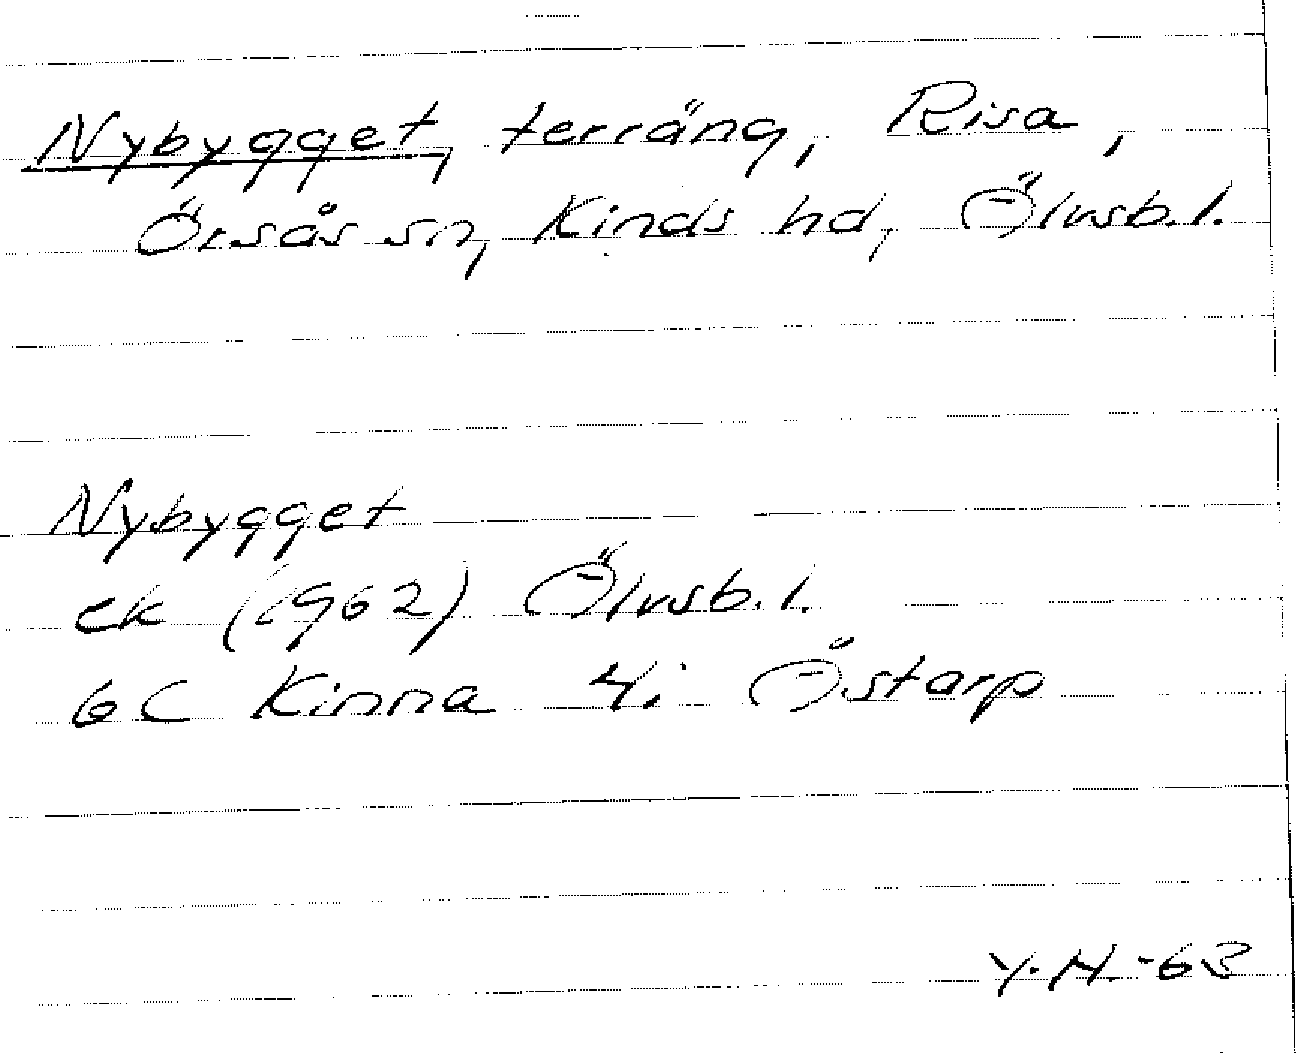 Nybygget, terräng, Risa,
Örsås sn, Kinds hd, Ölvsb.l.
Nybygget
ek (1962) Ölvsb.l.
6C Kinna 4i Östarp
Y.N.-63